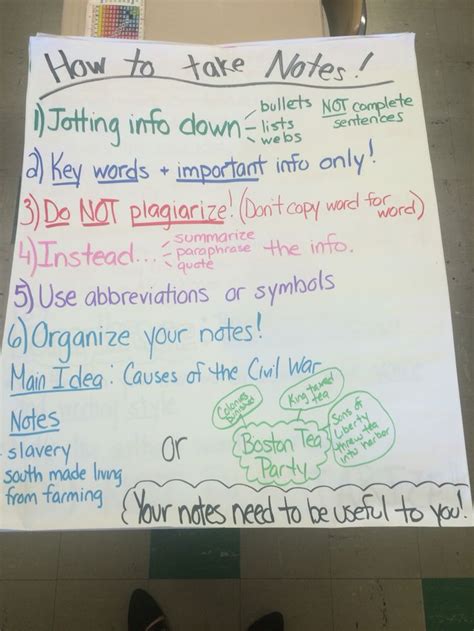 How to take Notes!
1) Jotting info down - bullets - lists - webs NOT complete sentences
2) Key words + important info only!
3) Do NOT plagiarize! (Don't copy word for word)
4) Instead... summarize paraphrase quote the info.
5) Use abbreviations or symbols
6) Organize your notes!
Main Idea: Causes of the Civil War
Notes
- slavery
south made living
from farming
or
Boston Tea
Party
Colonies
punished
King taxed
tea
Sons of
Liberty
threw tea
into harbor
Your notes need to be useful to you!